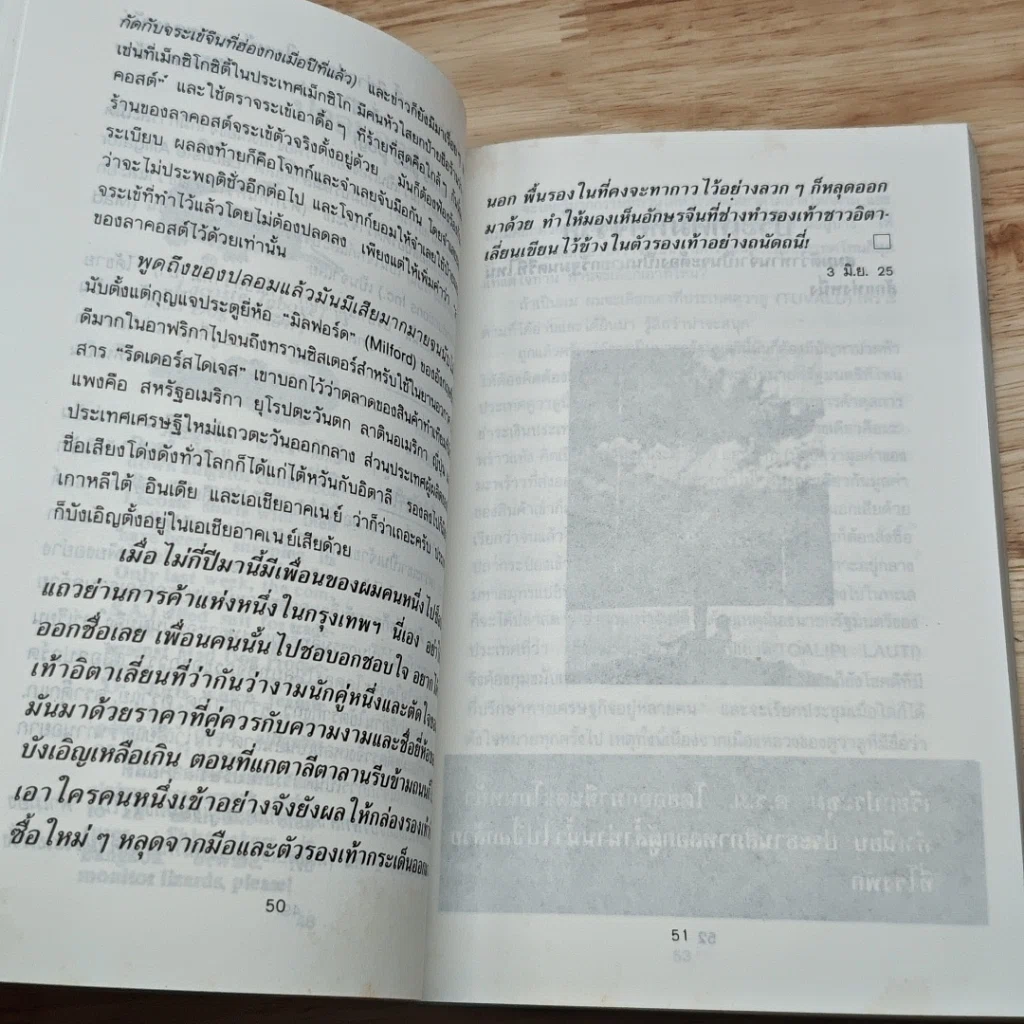 กัดกับจระเข้จีนที่ฮ่องกงเมื่อปีที่แล้ว) และข่าวก็ยังมีมา
เช่นที่เม็กซิโกซิตี้ในประเทศเม็กซิโก มีคนหัวใสยกป้ายชื่อร้าน
คอสต์" และใช้ตราจระเข้เอาดื้อๆ ที่ร้ายที่สุดคือใกล้ๆ กันนั้น
ร้านของลาคอสต์จระเข้ตัวจริงตั้งอยู่ด้วย มันก็ต้องฟ้อง
ระเบียบ ผลลงท้ายก็คือโจทก์และจำเลยจับมือกัน โดย
ว่าจะไม่ประพฤติชั่วอีกต่อไป และโจทก์ยอมให้จำเลยใช้
จระเข้ที่ทำไว้แล้วโดยไม่ต้องปลดลง เพียงแต่ให้เพิ่มคำว่า
ของลาคอสต์ไว้ด้วยเท่านั้น
พูดถึงของปลอมแล้วมันมีเสียมากมายจนนับ
นับตั้งแต่กุญแจประตูยี่ห้อ "มิลฟอร์ด" (Milford) ของอังกฤษ
ดีมากในอาฟริกาไปจนถึงทรานซิสเตอร์สำหรับใช้ในยานอวกาศ
สาร "รีดเดอร์สไดเจส" เขาบอกไว้ว่าตลาดของสินค้าทำเทียม
แพงคือ สหรัฐอเมริกา ยุโรปตะวันตก ลาตินอเมริกา ญี่ปุ่น
ประเทศเศรษฐีใหม่แถวตะวันออกกลาง ส่วนประเทศผู้ผลิต
ชื่อเสียงโด่งดังทั่วโลกก็ได้แก่ไต้หวันกับอิตาลี รองลงไปก็
เกาหลีใต้ อินเดีย และเอเชียอาคเนย์ ว่าก็ว่าเถอะครับ
ก็บังเอิญตั้งอยู่ในเอเชียอาคเนย์เสียด้วย
เมื่อไม่กี่ปีมานี้มีเพื่อนของผมคนหนึ่งไปซื้อ
แถวย่านการค้าแห่งหนึ่งในกรุงเทพฯ นี่เอง อย่า
ออกชื่อเลย เพื่อนคนนั้นไปชอบอกชอบใจ อยากได้
เท้าอิตาเลี่ยนที่ว่ากันว่างามนักคู่หนึ่งและตัดใจ
มันมาด้วยราคาที่คู่ควรกับความงามและชื่อยี่ห้อ
บังเอิญเหลือเกิน ตอนที่แกตาลีตาลานรีบข้ามถนน
เอาใครคนหนึ่งเข้าอย่างจังยังผลให้กล่องรองเท้า
ซื้อใหม่ๆ หลุดจากมือและตัวรองเท้ากระเด็นออก
50
นอก พื้นรองในที่คงจะทากาวไว้อย่างลวกๆ ก็หลุดออก
มาด้วย ทำให้มองเห็นอักษรจีนที่ช่างทำรองเท้าชาวอิตา-
เลี่ยนเขียนไว้ข้างในตัวรองเท้าอย่างถนัดถนี่!
3 มิ.ย. 25
51